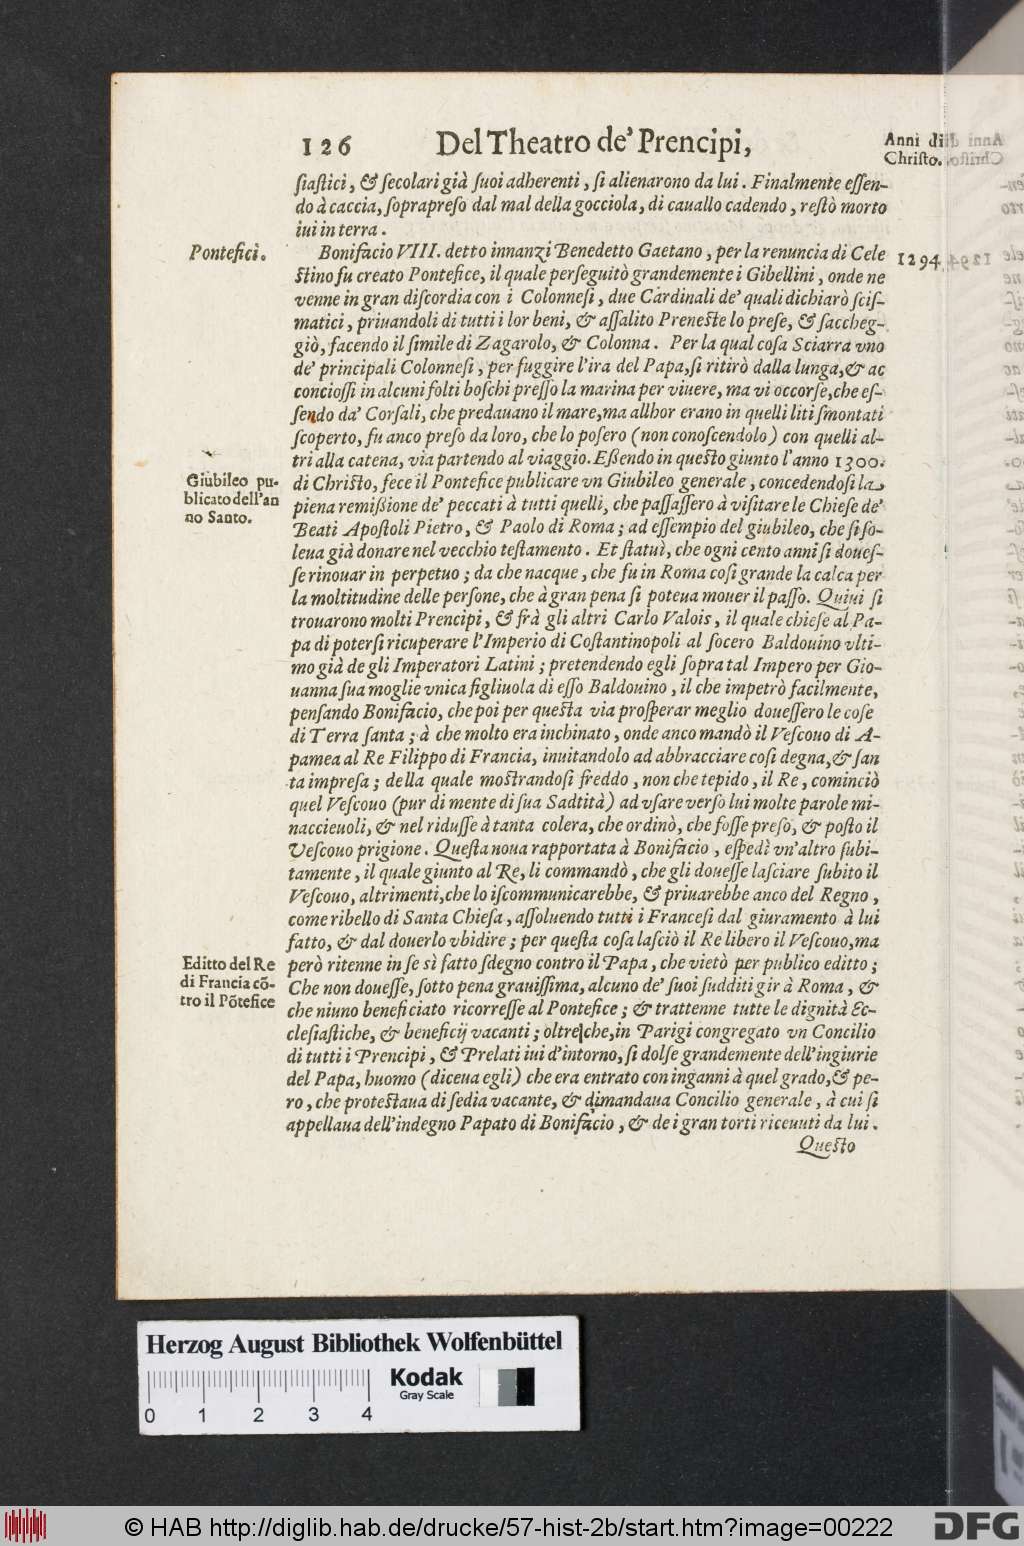 126 Del Theatro de' Prencipi, Anni di
Christo.
ſiaſtici, & ſecolari già ſuoi adherenti, ſi alienarono da lui. Finalmente eſſen-
do à caccia, ſoprapreſo dal mal della gocciola, di cauallo cadendo, reſtò morto
iui in terra.
Pontefici. Bonifacio VIII. detto innanzi Benedetto Gaetano, per la renuncia di Cele 1294
ſtino fu creato Pontefice, il quale perſeguitò grandemente i Gibellini, onde ne
venne in gran diſcordia con i Colonneſi, due Cardinali de' quali dichiarò ſciſ-
matici, priuandoli di tutti i lor beni, & aſſalito Preneſte lo preſe, & ſaccheg-
giò, facendo il ſimile di Zagarolo, & Colonna. Per la qual coſa Sciarra vno
de' principali Colonneſi, per fuggire l'ira del Papa, ſi ritirò dalla lunga, & ac
concioſſi in alcuni folti boſchi preſſo la marina per viuere, ma vi occorſe, che eſ-
ſendo da' Corſali, che predauano il mare, ma allhor erano in quelli liti ſmontati
ſcoperto, fu anco preſo da loro, che lo poſero (non conoſcendolo) con quelli al-
tri alla catena, via partendo al viaggio. Eßendo in queſto giunto l'anno 1300.
Giubileo pu-
blicato dell'an
no Santo.
di Chriſto, fece il Pontefice publicare vn Giubileo generale, concedendoſi la
piena remißione de' peccati à tutti quelli, che paſſaſſero à viſitare le Chieſe de'
Beati Apoſtoli Pietro, & Paolo di Roma; ad eſſempio del giubileo, che ſi ſo-
leua già donare nel vecchio teſtamento. Et ſtatuì, che ogni cento anni ſi doueſ-
ſe rinouar in perpetuo; da che nacque, che fu in Roma coſi grande la calca per
la moltitudine delle perſone, che à gran pena ſi poteua mouer il paſſo. Quiui ſi
trouarono molti Prencipi, & frà gli altri Carlo Valois, il quale chieſe al Pa-
pa di poterſi ricuperare l'Imperio di Coſtantinopoli al ſocero Baldouino vlti-
mo già de gli Imperatori Latini; pretendendo egli ſopra tal Impero per Gio-
uanna ſua moglie vnica figliuola di eſſo Baldouino, il che impetrò facilmente,
penſando Bonifacio, che poi per queſta via proſperar meglio doueſſero le coſe
di Terra ſanta; à che molto era inchinato, onde anco mandò il Veſcouo di A-
pamea al Re Filippo di Francia, inuitandolo ad abbracciare coſi degna, & ſan
ta impreſa; della quale moſtrandoſi freddo, non che tepido, il Re, cominciò
quel Veſcouo (pur di mente di ſua Sadtità) ad vſare verſo lui molte parole mi-
naccieuoli, & nel riduſſe à tanta colera, che ordinò, che foſſe preſo, & poſto il
Veſcouo prigione. Queſta noua rapportata à Bonifacio, eſpedì vn'altro ſubi-
tamente, il quale giunto al Re, li commandò, che gli doueſſe laſciare ſubito il
Veſcouo, altrimenti, che lo iſcommunicarebbe, & priuarebbe anco del Regno,
come ribello di Santa Chieſa, aſſoluendo tutti i Franceſi dal giuramento à lui
fatto, & dal douerlo vbidire; per queſta coſa laſciò il Re libero il Veſcouo, ma
Editto del Re
di Francia cō-
tro il Pōtefice
però ritenne in ſe sì fatto ſdegno contro il Papa, che vietò per publico editto;
Che non doueſſe, ſotto pena grauiſſima, alcuno de' ſuoi ſudditi gir à Roma, &
che niuno beneficiato ricorreſſe al Pontefice; & trattenne tutte le dignità Ec-
cleſiaſtiche, & beneficij vacanti; oltre che, in Parigi congregato vn Concilio
di tutti i Prencipi, & Prelati iui d'intorno, ſi dolſe grandemente dell'ingiurie
del Papa, huomo (diceua egli) che era entrato con inganni à quel grado, & pe-
ro, che proteſtaua di ſedia vacante, & dimandaua Concilio generale, à cui ſi
appellaua dell'indegno Papato di Bonifacio, & de i gran torti riceuuti da lui.
Queſto
Herzog August Bibliothek Wolfenbüttel
Kodak
Gray Scale
0 1 2 3 4
© HAB http://diglib.hab.de/drucke/57-hist-2b/start.htm?image=00222
DFG